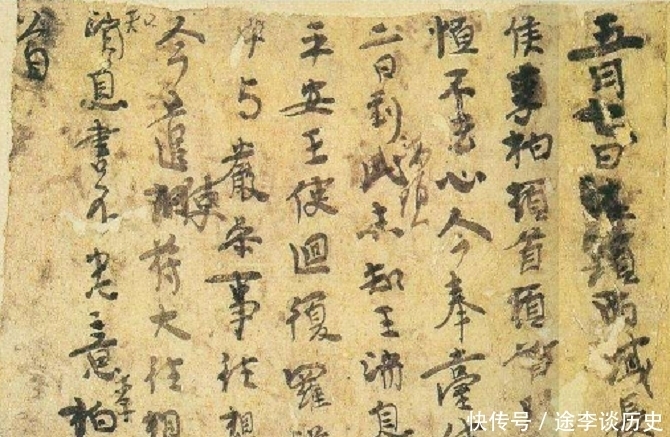 五月七日海頭西域長
侯李柏頓首頓首
恒不去心今奉臺使
二日到此海頭未知王消息
平安王使迴復羅
中与嚴參事往想
今遣使苻大往相
知消息書不悉意李柏
首
快传号 / 途李谈历史